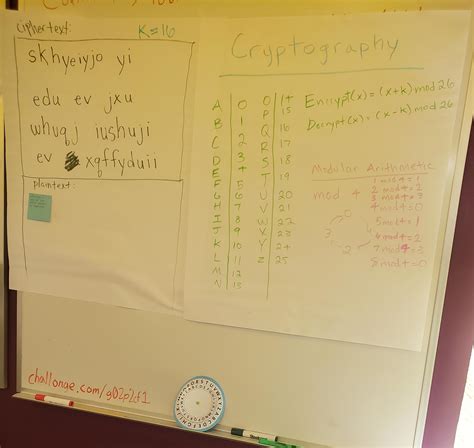 ciphertext:
K=16
skhyeiyjo yi
edu ev jxu
whuqj iushuji
ev xqffyduii
plaintext:
Cryptography
A 0 O 14
B 1 P 15
C 2 Q 16
D 3 R 17
E 4 S 18
F 5 T 19
G 6 U 20
H 7 V 21
I 8 W 22
J 9 X 23
K 10 Y 24
L 11 Z 25
M 12
N 13
Encrypt(x)=(x+k)mod 26
Decrypt(x)=(x-k)mod 26
Modular Arithmetic
mod 4
1 mod 4=1
2 mod 4=2
3 mod 4=3
4 mod 4=0
5 mod 4=1
6 mod 4=2
7 mod 4=3
8 mod 4=0
0
3
2